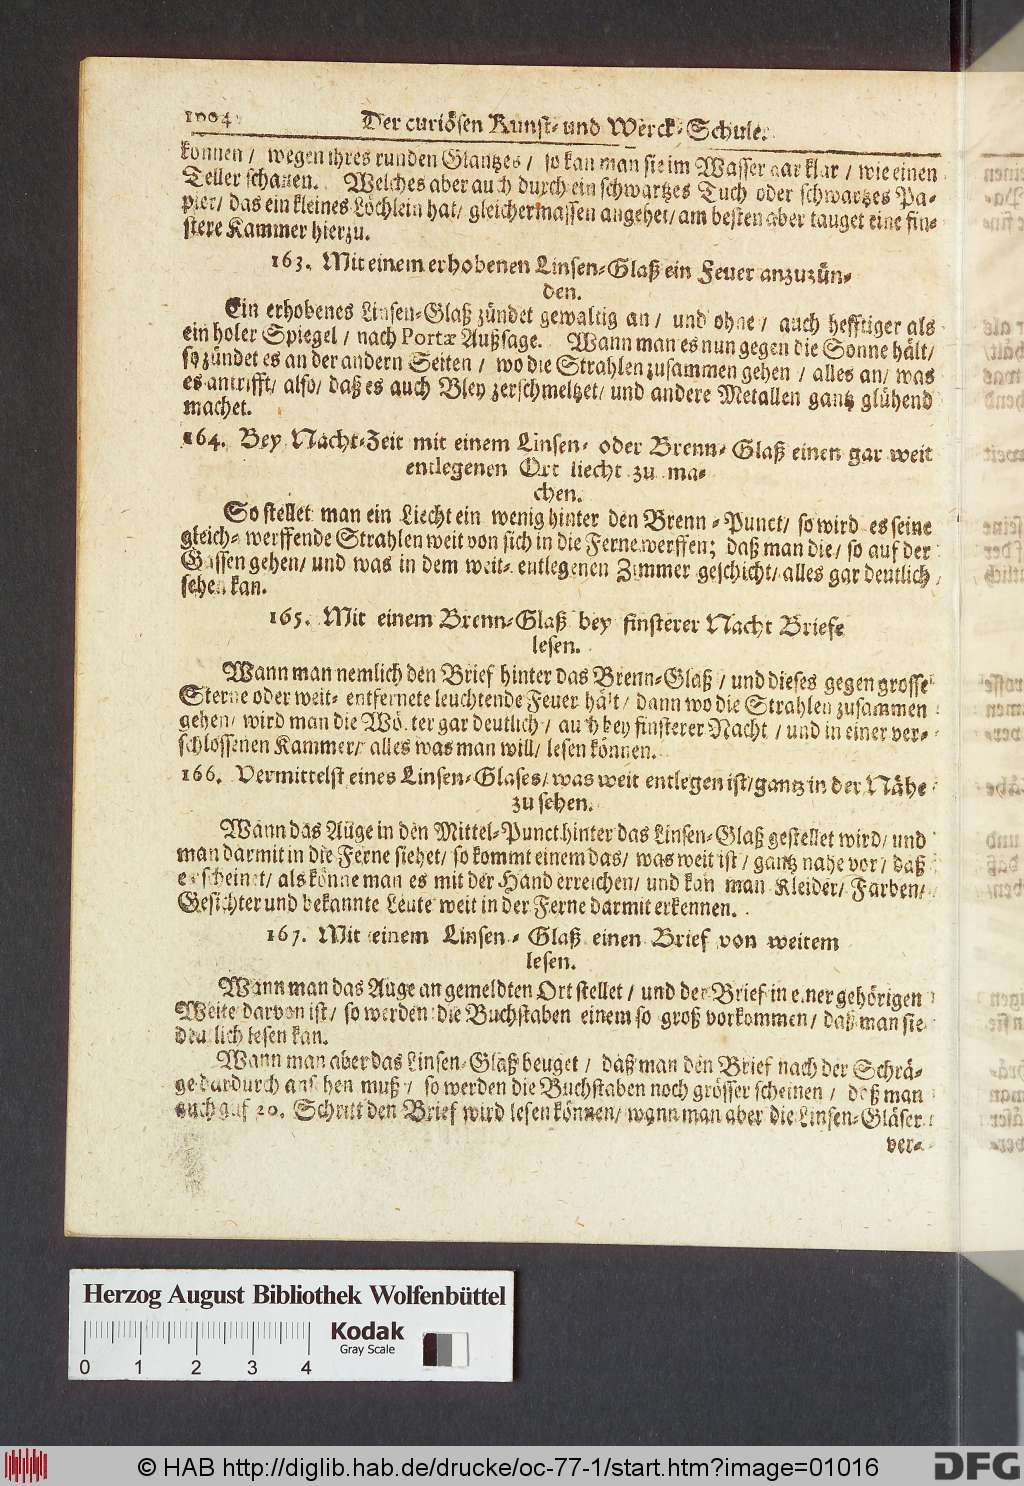 1004 Der curiösen Kunst- und Werck-Schule.
können / wegen ihres runden Glantzes / so kan man sie im Wasser gar klar / wie einen
Teller schauen. Welches aber auch durch ein schwartzes Tuch oder schwartzes Pa-
pier / das ein kleines Löchlein hat / gleichermassen angehet / am besten aber tauget eine fin-
stere Kammer hierzu.
163. Mit einem erhobenen Linsen-Glaß ein Feuer anzuzün-
den.
Ein erhobenes Linsen-Glaß zündet gewaltig an / und ohne / auch hefftiger als
ein holer Spiegel / nach Portæ Außsage. Wann man es nun gegen die Sonne hält /
so zündet es an der andern Seiten / wo die Strahlen zusammen gehen / alles an / was
es antrifft / also / daß es auch Bley zerschmeltzet / und andere Metallen gantz glühend
machet.
164. Bey Nacht-Zeit mit einem Linsen- oder Brenn-Glaß einen gar weit
entlegenen Ort liecht zu ma-
chen.
So stellet man ein Liecht ein wenig hinter den Brenn-Punct / so wird es seine
gleich-werffende Strahlen weit von sich in die Ferne werffen; daß man die / so auf der
Gassen gehen / und was in dem weit-entlegenen Zimmer geschicht / alles gar deutlich
sehen kan.
165. Mit einem Brenn-Glaß bey finsterer Nacht Briefe
lesen.
Wann man nemlich den Brief hinter das Brenn-Glaß / und dieses gegen grosse
Sterne oder weit-entfernete leuchtende Feuer hält / dann wo die Strahlen zusammen
gehen / wird man die Wörter gar deutlich / auch bey finsterer Nacht / und in einer ver-
schlossenen Kammer / alles was man will / lesen können.
166. Vermittelst eines Linsen-Glases / was weit entlegen ist / gantz in der Nähe
zu sehen.
Wann das Auge in den Mittel-Punct hinter das Linsen-Glaß gestellet wird / und
man darmit in die Ferne siehet / so kommt einem das / was weit ist / gantz nahe vor / daß
es scheinet / als könne man es mit der Hand erreichen / und kan man Kleider / Farben /
Gesichter und bekannte Leute weit in der Ferne darmit erkennen.
167. Mit einem Linsen-Glaß einen Brief von weitem
lesen.
Wann man das Auge an gemeldten Ort stellet / und der Brief in einer gehörigen
Weite darvon ist / so werden die Buchstaben einem so groß vorkommen / daß man sie
deutlich lesen kan.
Wann man aber das Linsen-Glaß beuget / daß man den Brief nach der Schrä-
ge dardurch ansehen muß / so werden die Buchstaben noch grösser scheinen / daß man
auch auf 20. Schritt den Brief wird lesen können / wann man aber die Linsen-Gläser
ver-
Herzog August Bibliothek Wolfenbüttel
Kodak
Gray Scale
0 1 2 3 4
© HAB http://diglib.hab.de/drucke/oc-77-1/start.htm?image=01016
DFG